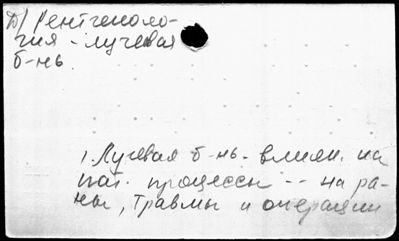 D/ Рентгеноло-
гия - лучевая
б-нь.
1. Лучевая б-нь - влиян. на
пат. процессы -- на ра-
ны, травмы и операции